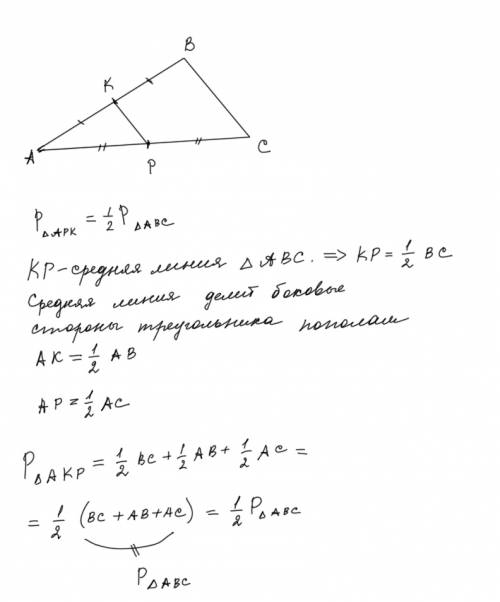 B
K
A
P
C
P△APK = 1/2 P△ABC
KP-средняя линия △ABC. => KP = 1/2 BC
Средняя линия делит боковые
стороны треугольника пополам
AK = 1/2 AB
AP = 1/2 AC
P△AKP = 1/2 BC + 1/2 AB + 1/2 AC =
= 1/2 (BC + AB + AC) = 1/2 P△ABC
P△ABC